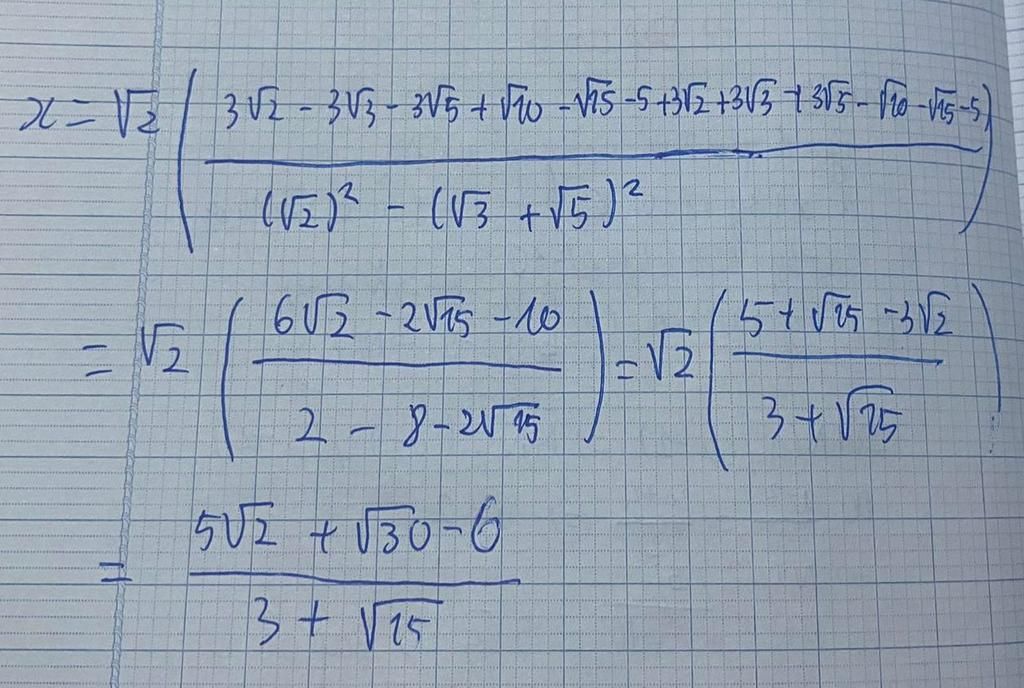 x = √2 ( (3√2 - 3√3 - 3√5 + √10 - √15 - 5 + 3√2 + 3√3 + 3√5 - √10 - √15 - 5) / ((√2)² - (√3 + √5)²) )
= √2 ( (6√2 - 2√15 - 10) / (2 - 8 - 2√15) ) = √2 ( (5 + √15 - 3√2) / (3 + √15) )
= (5√2 + √30 - 6) / (3 + √15)